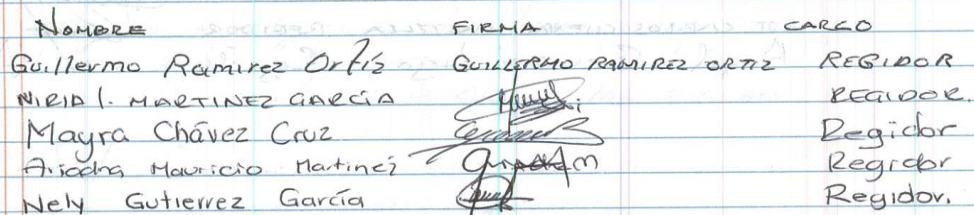 NOMBRE FIRMA CARGO
Guillermo Ramirez Ortiz GUILLERMO RAMIREZ ORTIZ REGIDOR
NIRID I. MARTINEZ GARCÍA REGIDOR.
Mayra Chávez Cruz Regidor
Ariadna Mauricio Martinez Regidor
Nely Gutierrez García Regidor.